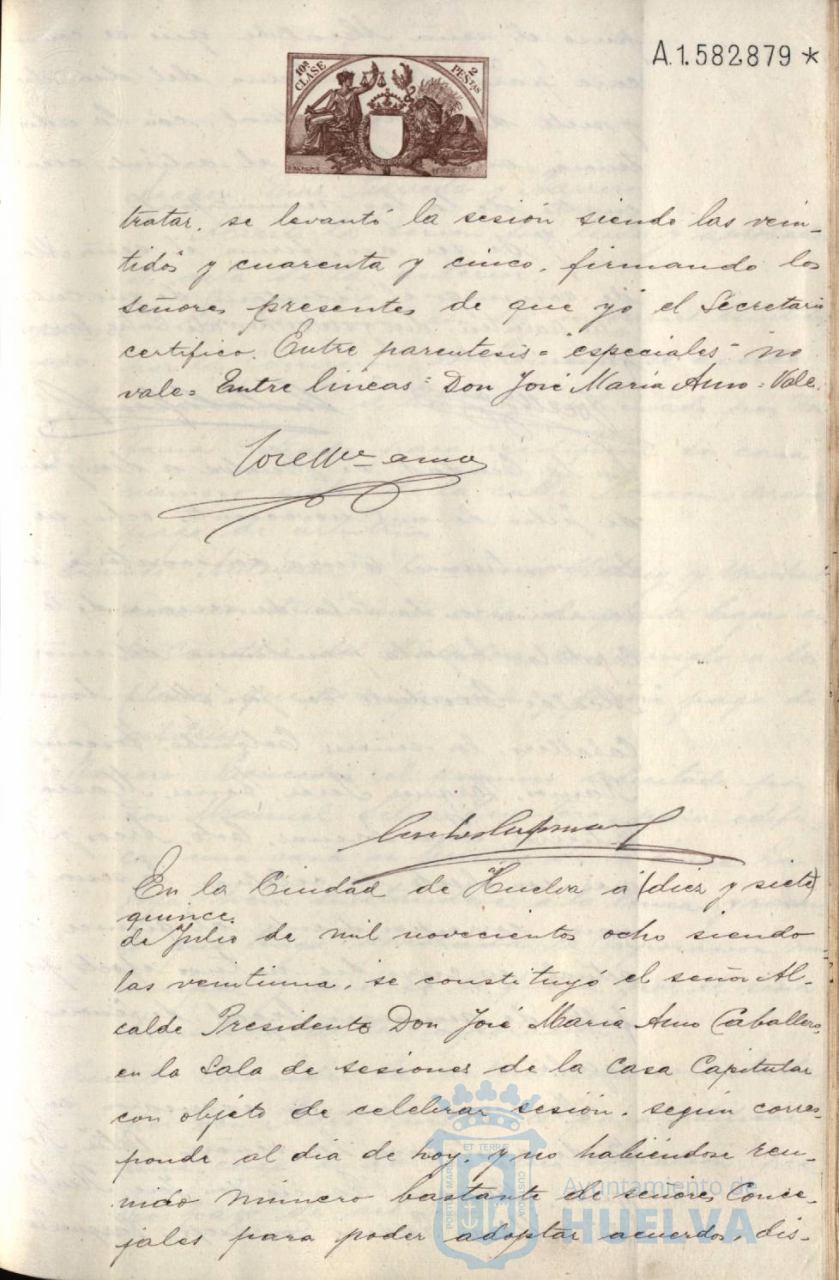 10ª CLASE 2 PESETAS
A.1.582.879 *
tratar, se levantó la sesión siendo las vein-
tidós y cuarenta y cinco, firmando los
señores presentes de que yó el Secretario
certifico. Entre parentesis = especiales = no
vale = Entre lineas = Don José María Amo = Vale.
José Mª Amo
En la Ciudad de Huelva á (diez y siete)
quince
de Julio de mil novecientos ocho siendo
las veintiuna, se constituyó el señor Al-
calde Presidente Don José María Amo Caballero,
en la Sala de sesiones de la Casa Capitular
con objéto de celebrar sesión, según corres-
ponde al dia de hoy, y no habiéndose reu-
nido número bastante de señores Conce-
jales para poder adoptar acuerdos, dis-
PORTUS MARIS ET TERRAE CUSTODIA
Ayuntamiento de
HUELVA